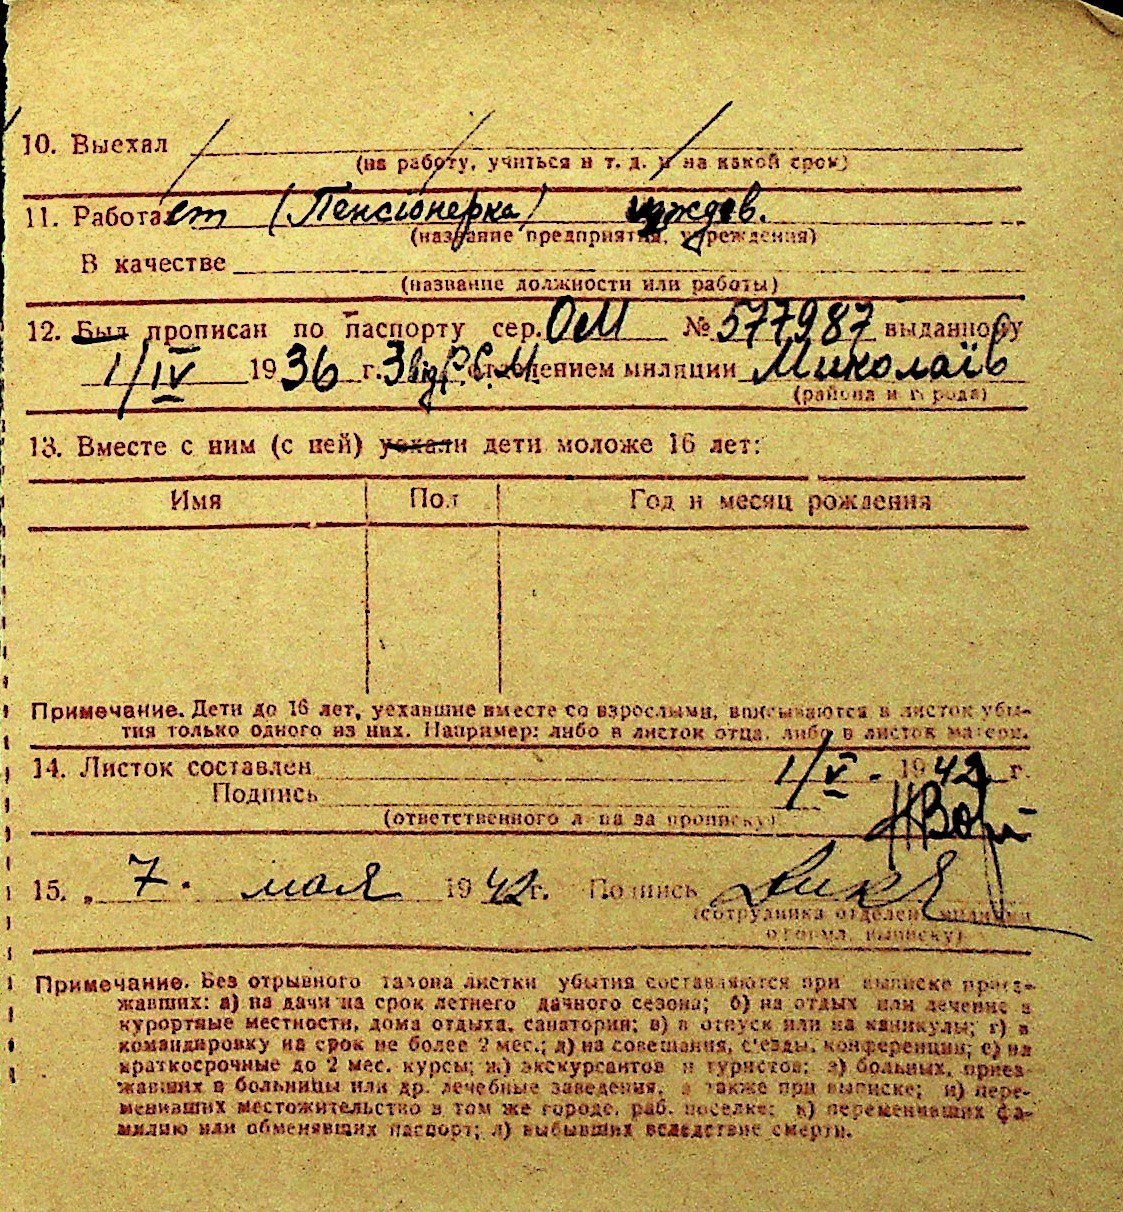 10. Выехал
(на работу, учиться и т. д. и на какой срок)
11. Работает (Пенсіонерка) иждев.
(название предприятия, учреждения)
В качестве
(название должности или работы)
12. Был прописан по паспорту сер. ОМ № 577987 выданному
1/IV 1936 г. 3 від. Р.С.М. отделением милиции Миколаїв
(района и города)
13. Вместе с ним (с ней) уехали дети моложе 16 лет:
Имя Пол Год и месяц рождения
Примечание. Дети до 16 лет, уехавшие вместе со взрослыми, вписываются в листок убы-
тия только одного из них. Например: либо в листок отца, либо в листок матери.
14. Листок составлен 1/V - 1942 г.
Подпись
(ответственного лица за прописку)
15. „ 7. мая 1942 г. Подпись
(сотрудника отделен. милиции
оформл. выписку)
Примечание. Без отрывного талона листки убытия составляются при выписке приез-
жавших: а) на дачи на срок летнего дачного сезона; б) на отдых или лечение в
курортные местности, дома отдыха, санатории; в) в отпуск или на каникулы; г) в
командировку на срок не более 2 мес.; д) на совещания, с'езды, конференции; е) на
краткосрочные до 2 мес. курсы; ж) экскурсантов и туристов; з) больных, приез-
жавших в больницы или др. лечебные заведения, а также при выписке; и) пере-
менивших местожительство в том же городе, раб. поселке; к) переменивших фа-
милию или обменявших паспорт; л) выбывших вследствие смерти.